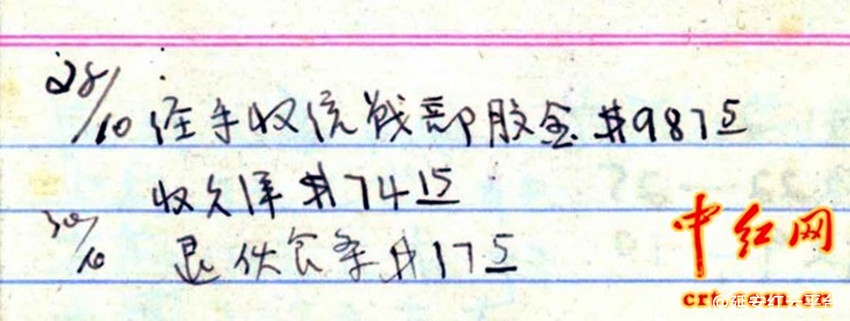 28/10 经手收统战部股金 $987 5
收久洋 $74 15
30/10 退伙食条 $17 5
中红网
crt.com.cn